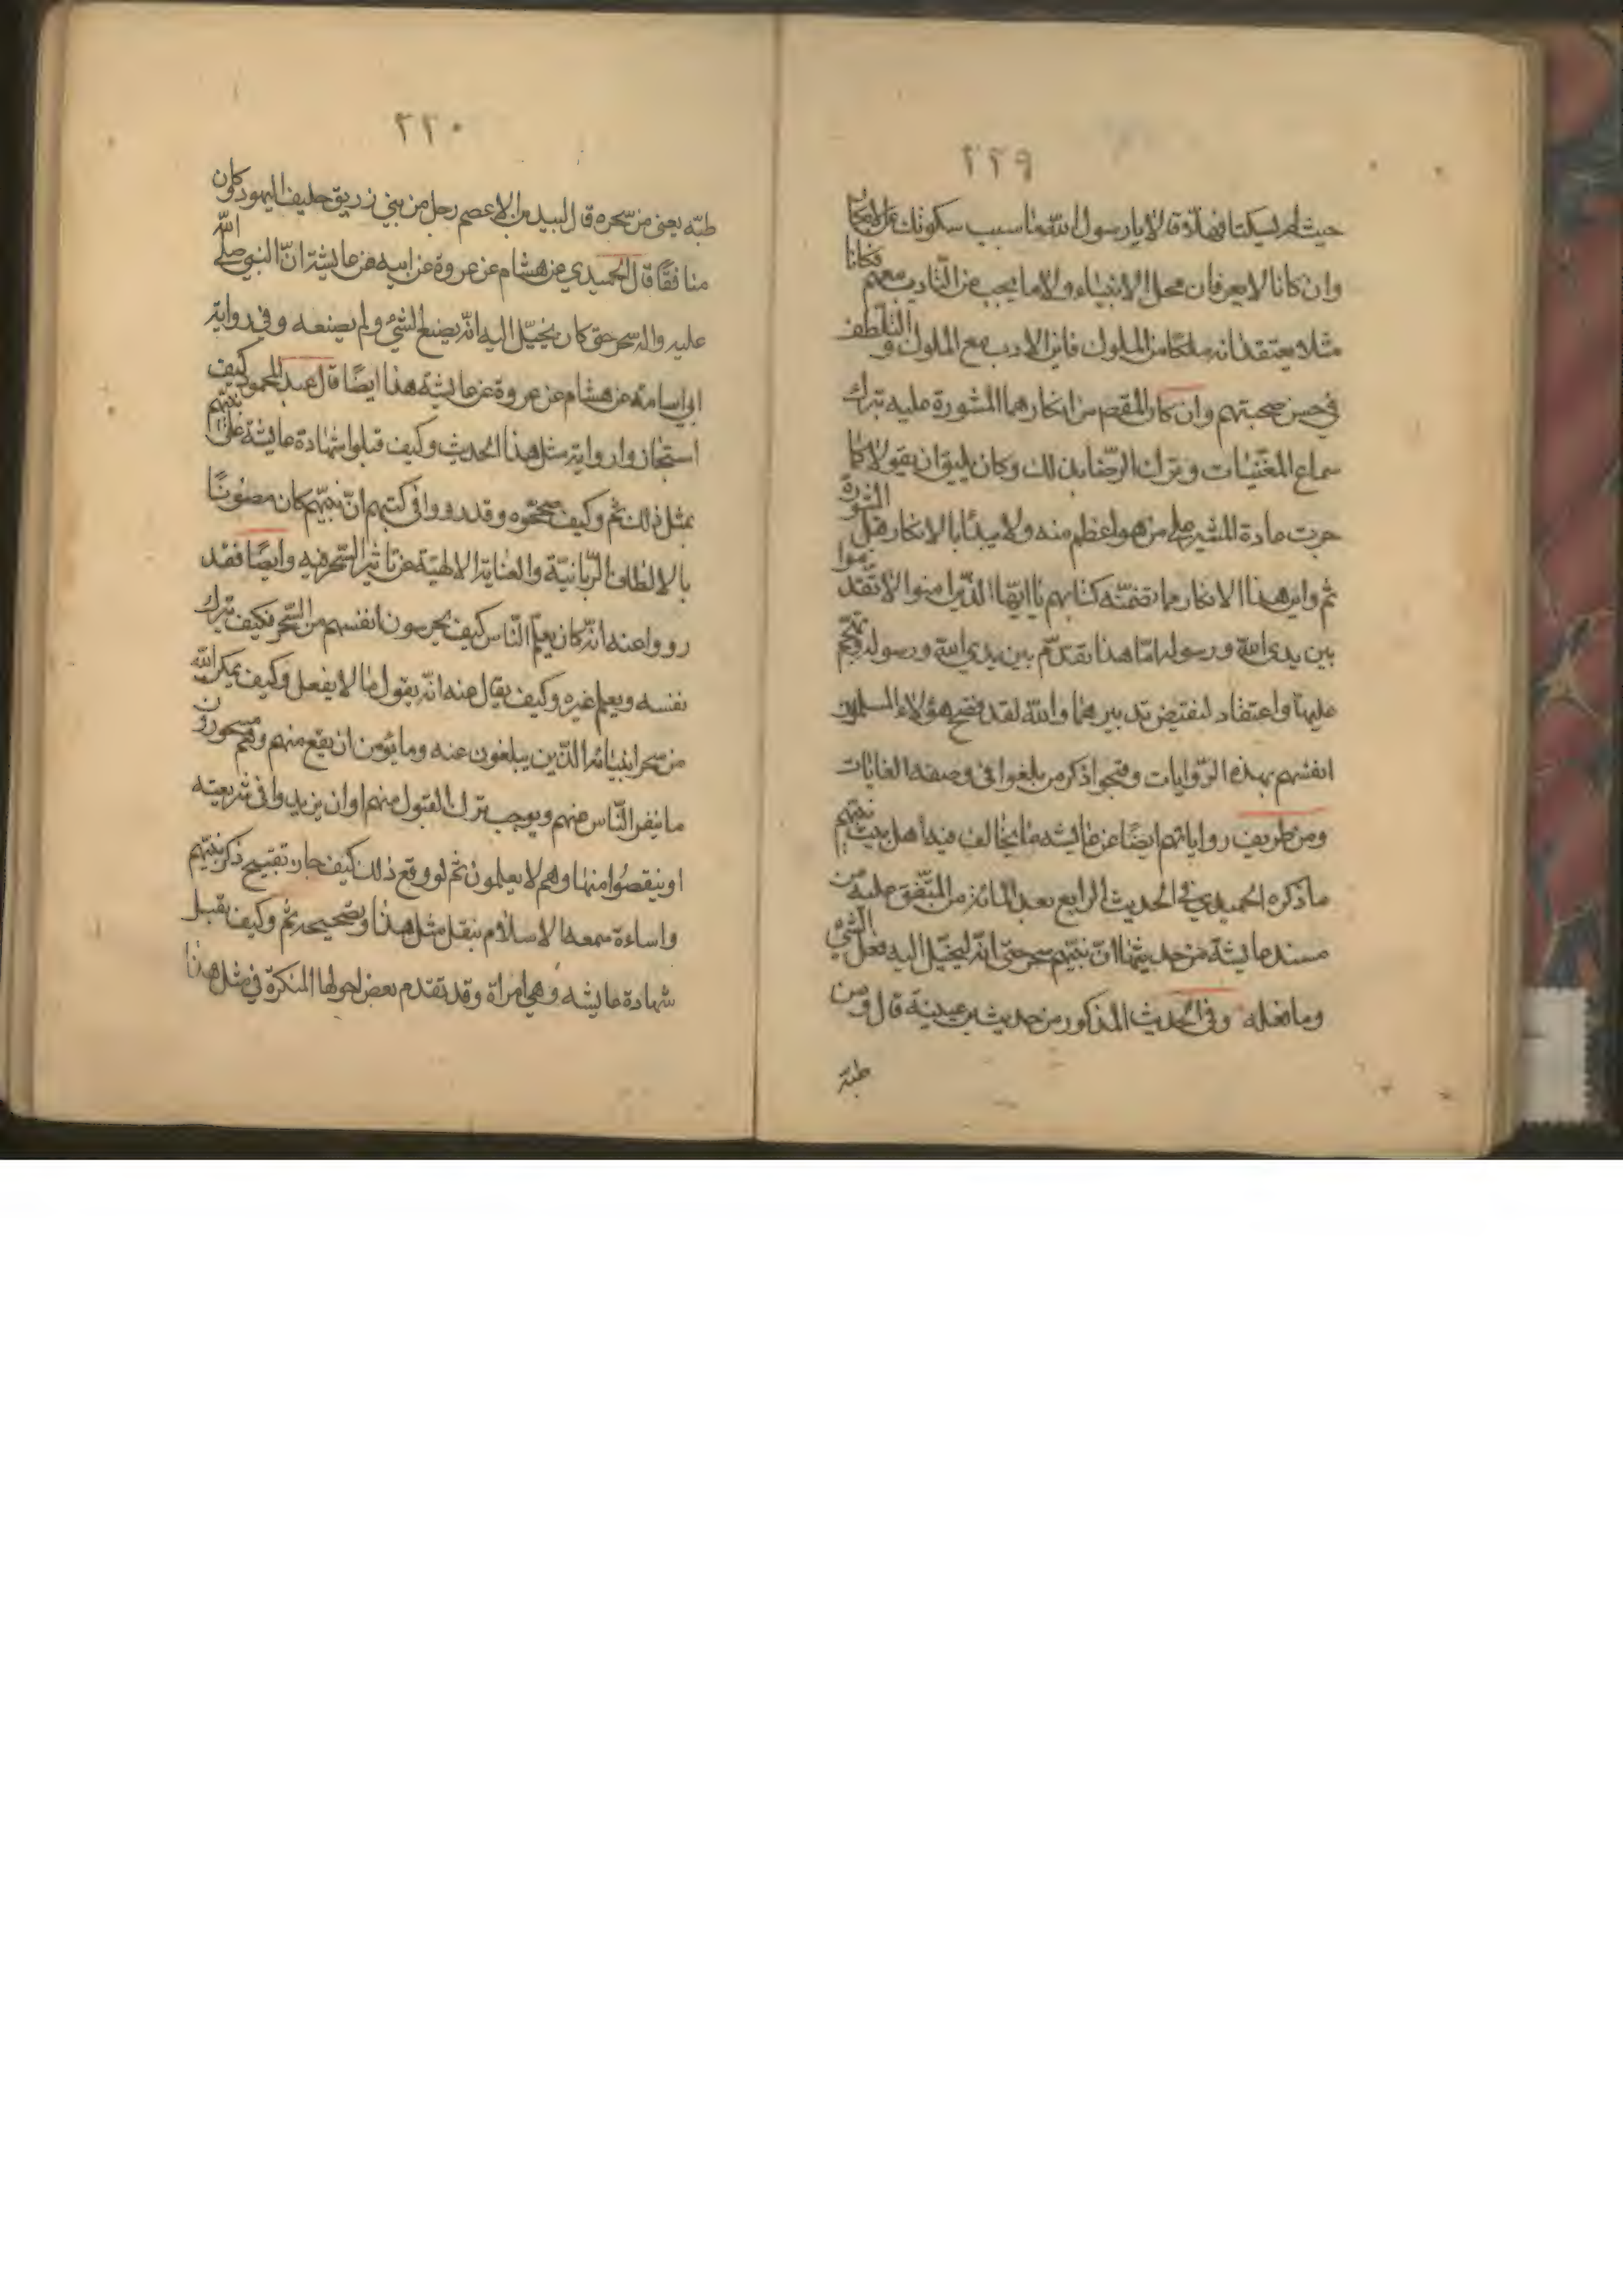 ٢٢٩
حيث لم يسكتا فهلا قالا يا رسول الله ما سبب سكوتك عن الانكار
وان كانا لا يعرفان محل الانبياء ولا ما يجب من التاديب معهم فكانا
مثلا يعتقدانه ملكا من الملوك فاين الادب مع الملوك والتلطف
في حسن صحبتهم وان كان المقصد من انكارهما المشورة عليه بترك
سماع المغنيات وبترك الرضا بذلك وكان يليق ان يقولا كما
جرت عادة المشير على من هو اعظم منه ولا يبدئا بالانكار قبل المشورة
ثم واين هذا الانكار مما تضمنه كتابهم يا ايها الذين امنوا لا تقدموا
بين يدى الله ورسوله اما هذا تقدم بين يدي الله ورسوله وتهجم
عليهما واعتقاد لنقض تدبيرهما والله لقد فضح هؤلاء المسلمون
انفسهم بهذه الروايات وقبحوا ذكر من بلغوا في وصفه الغايات
ومن طريف رواياتهم ايضًا عن عايشه ما يخالف فيه اهل بيت نبيهم
ما ذكره الحميدي في الحديث الرابع بعد المائة من المتفق عليه من
مسند عايشة من حديثها ان نبيهم سحر حتى انه ليخيل اليه فعل الشئ
وما فعله وفى الحديث المذكور من حديث بن عيينة قال ومن
طبّه
٢٢٠
طبّه يعنى من سحره قال لبيد بن الاعصم رجل من بني زريق حليف اليهود كان
منافقًا قال الحميدي عن هشام عن عروة عن ابيه عن عايشة انّ النبي صلى الله
عليه واله سحر حتى كان يخيّل اليه انّه يصنع الشئ ولم يصنعه وفى رواية
ابي اسامة عن هشام عن عروة عن عايشة هذا ايضًا قال عبد المحمود كيف
استجازوا رواية مثل هذا الحديث وكيف قبلوا شهادة عايشة على نبيهم
بمثل ذلك ثم وكيف صححوه وقد رووا في كتبهم انّ نبيّهم كان مصونًا
بالالطاف الربانيّة والعناية الالهيّة عن تاثير السحر فيه وايضًا فقد
رووا عنه انّه كان يعلّم النّاس كيف يحرسون انفسهم من السّحر فكيف يترك
نفسه ويعلم غيره وكيف يقال عنه انّه يقول ما لا يفعل وكيف يمكن الله
من سحر انبيائه الذّين يبلغون عنه وما يؤمن ان يقع منهم وهم مسحورون
ما ينفر النّاس منهم ويوجب ترك القبول منهم او ان يزيدوا في شريعته
او ينقصُوا منها وهم لا يعلمون ثم لو وقع ذلك كيف جاز تقبيح ذكر نبيّهم
واساءة سمعة الاسلام بنقل مثل هذا وتصحيحه ثم وكيف تقبل
شهادة عايشه وهي امراة وقد تقدم بعض احوالها المنكرة في مثل هذا